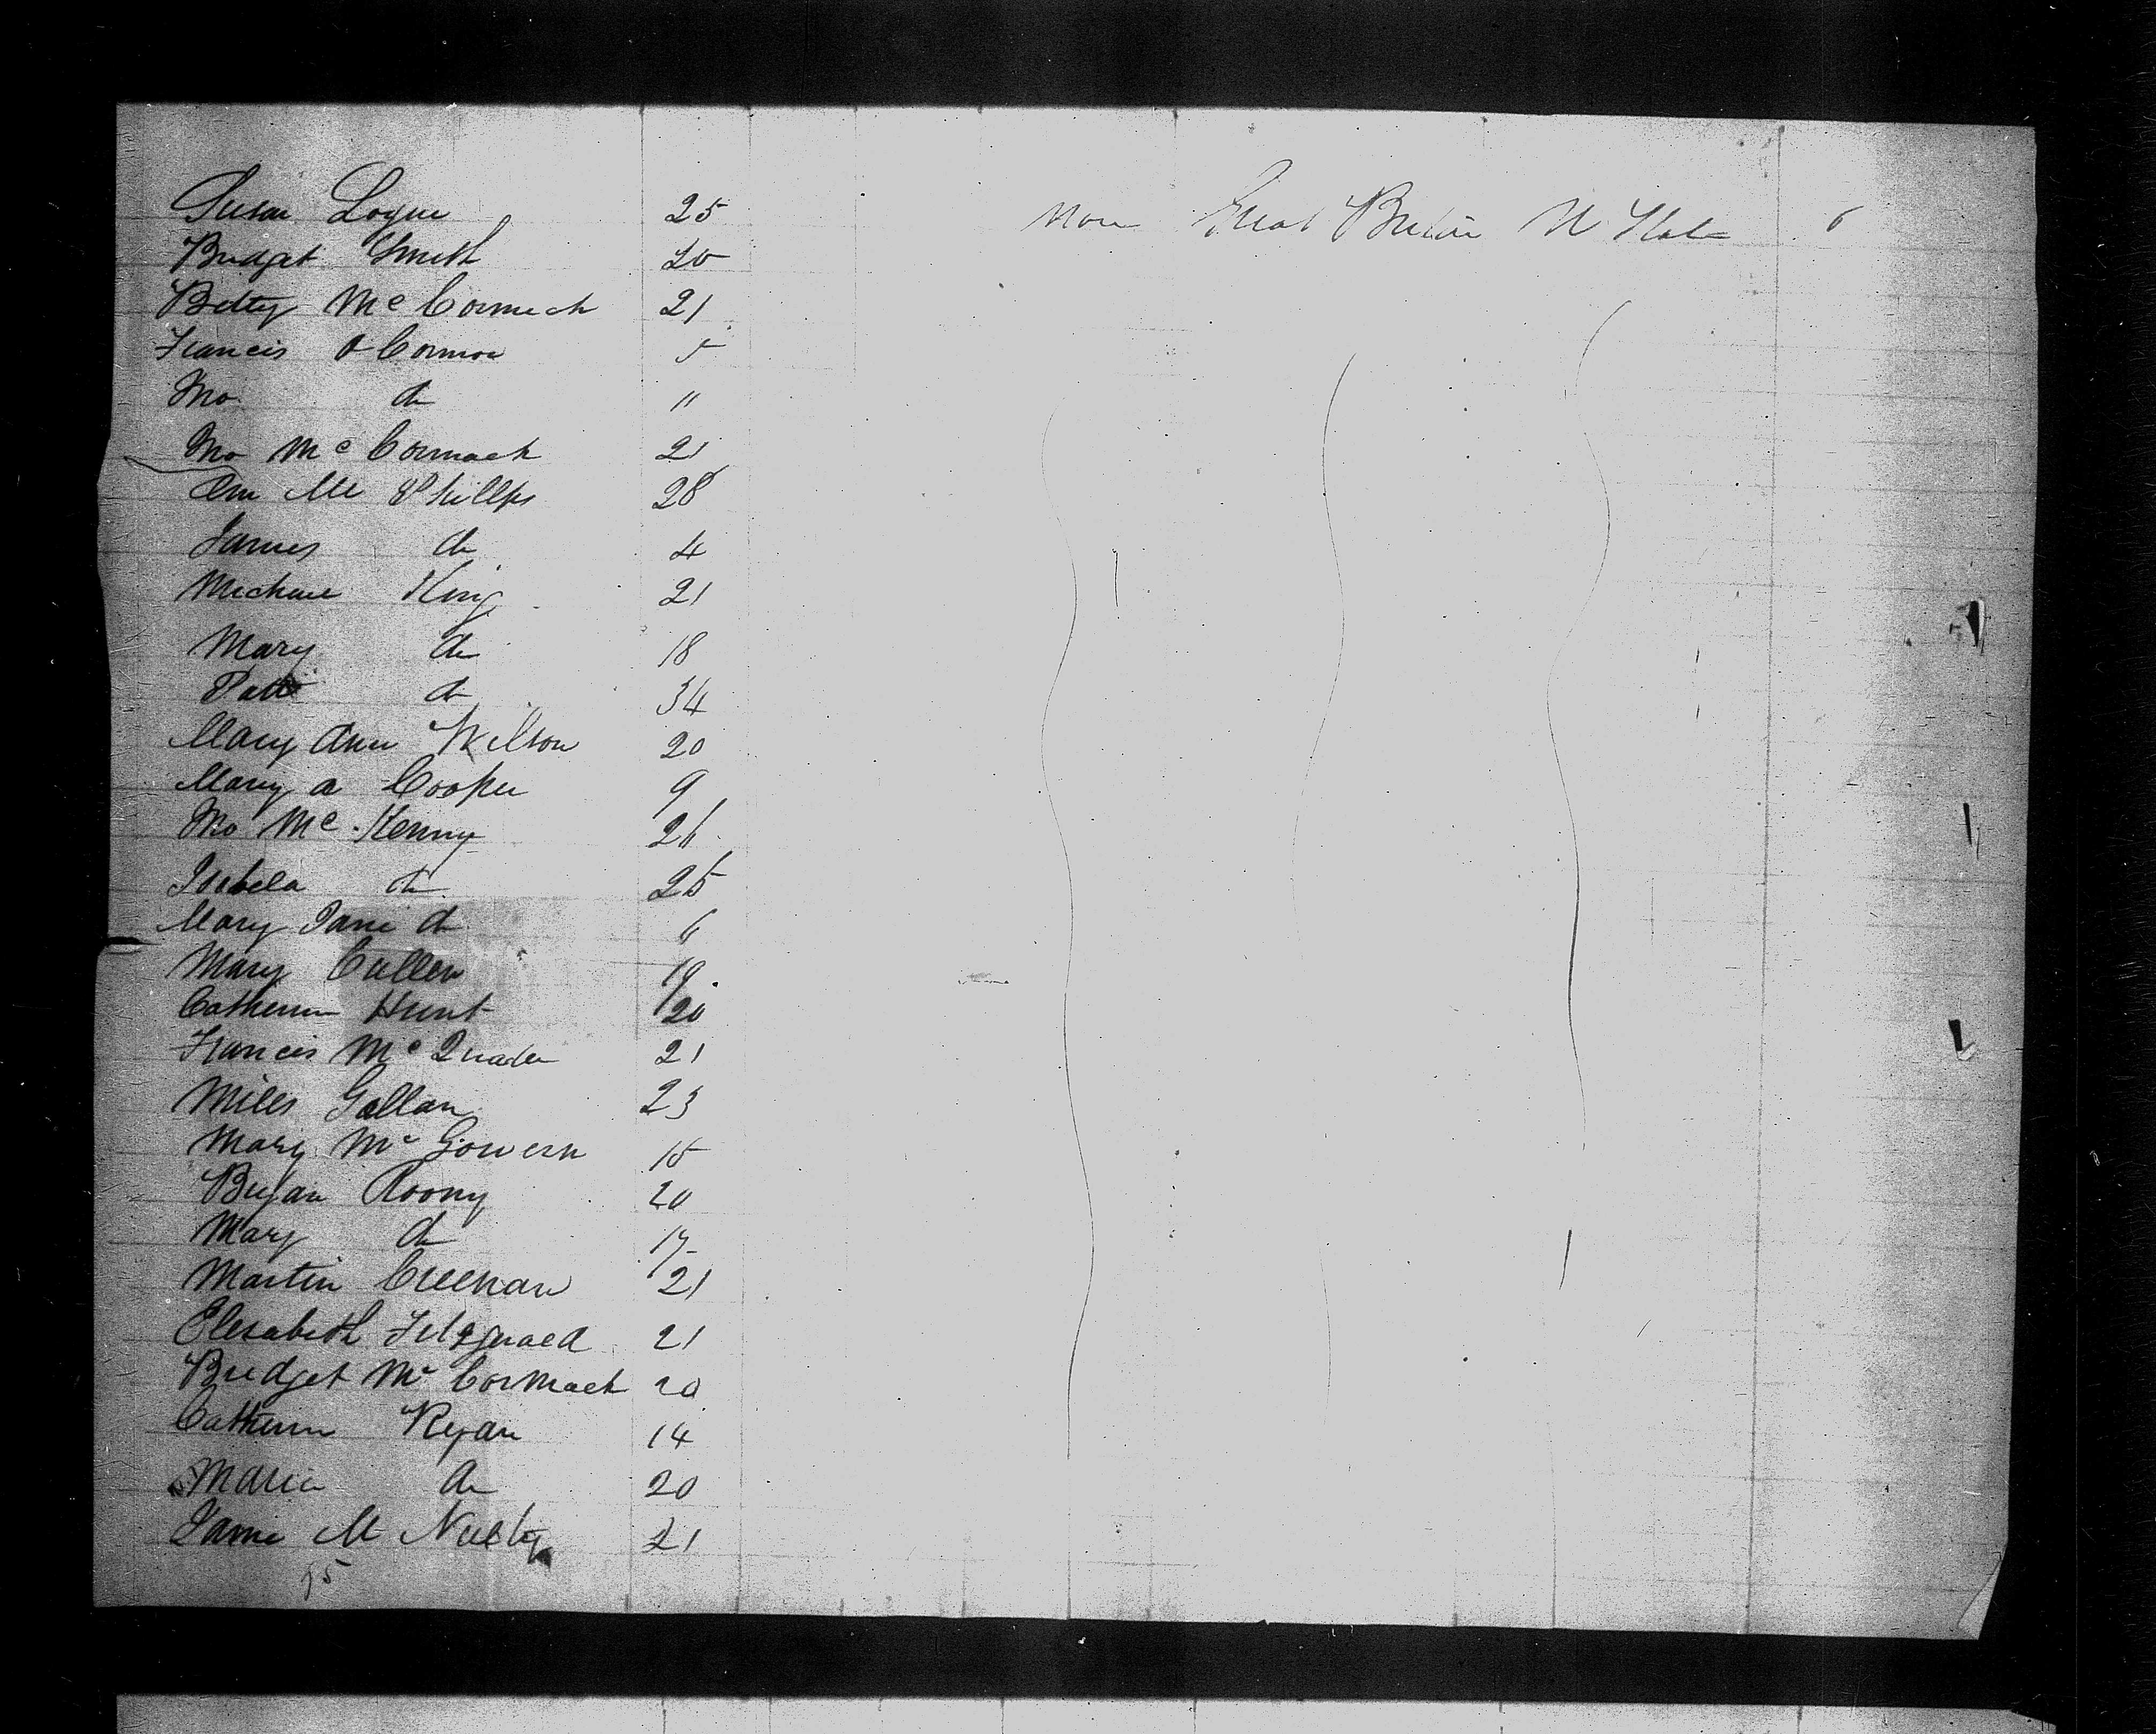 Susan Logue 25 None Great Britain U States 6
Bridget Smith 20
Betty Mc Cormick 21
Francis O Connor 5
Jno do "
Jno Mc Cormack 21
Ann Phillps 28
James do 4
Michael King 21
Mary do 18
Patk do 34
Mary Ann Wilson 20
Mary A Cooper 9
Jno Mc Kenny 26
Isabela do 25
Mary Jane do 6
Mary Cullen 19
Catherin Hunt 20
Francis Mc Quade 21
Miles Gallan 23
Mary Mc Gowern 15
Bryan Roony 20
Mary do 17
Martin Creenan 21
Elesabeth Fitzgerald 21
Bridget Mc Cormack 20
Catherin Ryan 14
Maria do 20
Jane M Nulty 21